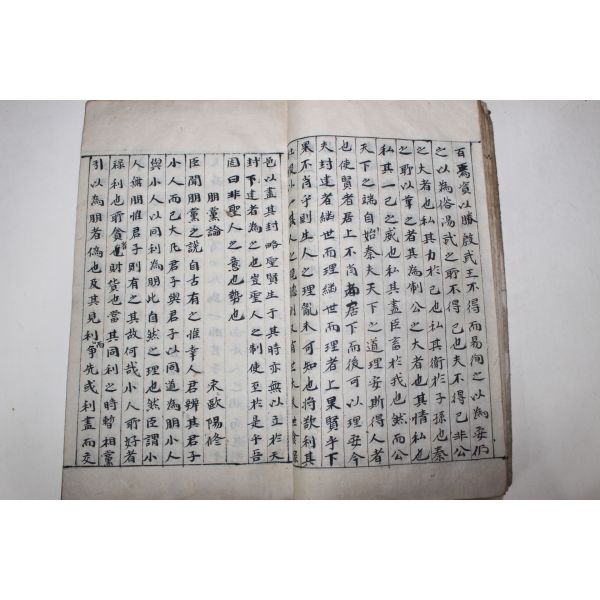 百焉資以勝殷武王不得而易徇之以為安仍
之以為俗湯武之所不得已也夫不得已非公
之大者也私其力於己也私其衛於子孫也秦
之所以革之者其為制公之大者也其情私也
私其一己之威也私其盡臣畜於我也然而公
天下之端自始秦夫天下之道理安斯得人者
也使賢者居上不肖者居下而後可以理安今
夫封建者繼世而理繼世而理者上果賢乎下
果不肖乎則生人之理亂未可知也將欲利其
邑以盡其封略聖賢生于其時亦無以立於天
封下建者為之也豈聖人之制使至於是乎吾
固曰非聖人之意也勢也
朋黨論 宋歐陽修
臣聞朋黨之說自古有之惟幸人君辨其君子
小人而已大凡君子與君子以同道為朋小人
與小人以同利為朋此自然之理也然臣謂小
人無朋惟君子則有之其故何哉小人所好者
祿利也所貪者財貨也當其同利之時暫相黨
引以為朋者僞也及其見利而爭先或利盡而交